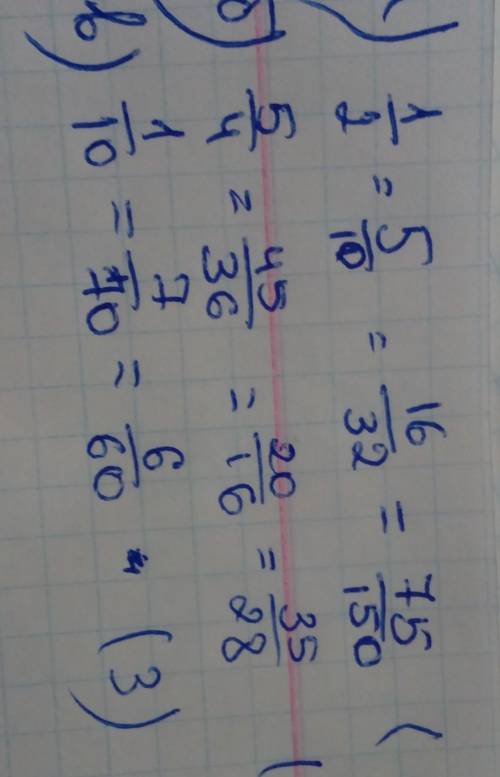 ) 1/2 = 5/10 = 16/32 = 75/150 (
б) 5/4 = 45/36 = 20/16 = 35/28 (
в) 1/10 = 7/70 = 6/60 (3)